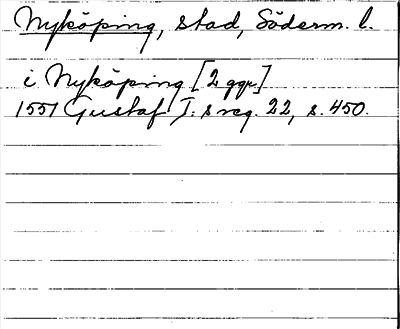 Nyköping, stad, Söderm. l.
i Nyköping [2 ggr]
1551 Gustaf I: s reg. 22, s. 450.